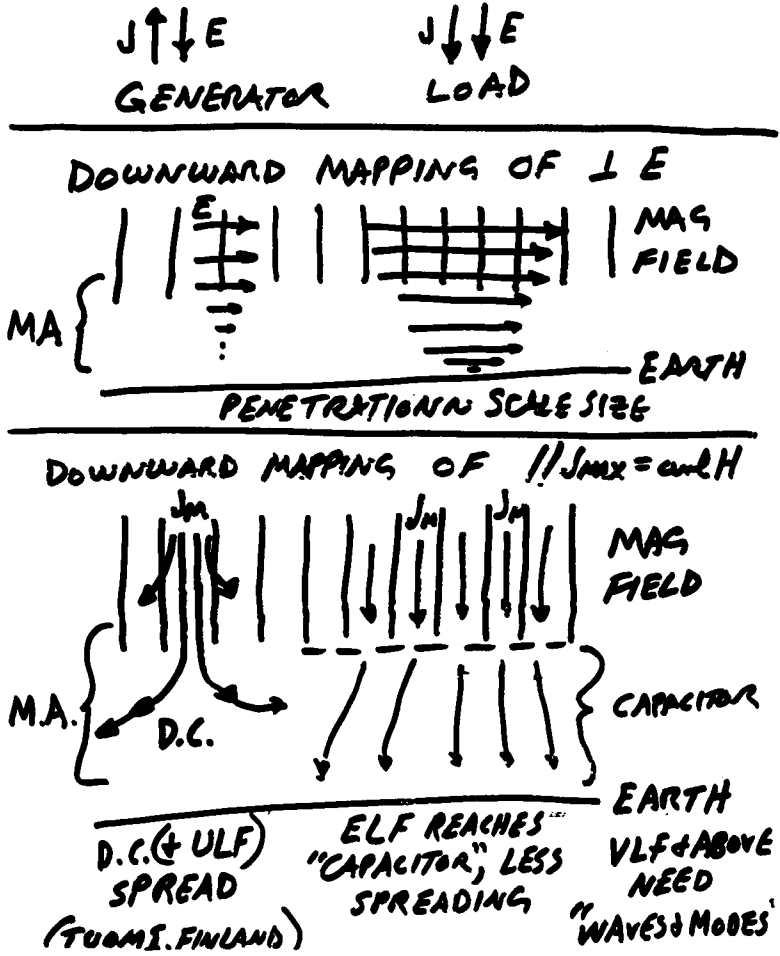 J E J E
GENERATOR LOAD
DOWNWARD MAPPING OF ⊥ E
E MAG
FIELD
MA
EARTH
PENETRATIONN SCALE SIZE
DOWNWARD MAPPING OF // JMAX = curl H
JM JM JM MAG
FIELD
M.A. CAPACITOR
D.C.
EARTH
D.C.(+ ULF)
SPREAD
(TUOMI. FINLAND)
ELF REACHES
"CAPACITOR", LESS
SPREADING
VLF & ABOVE
NEED
"WAVES & MODES'